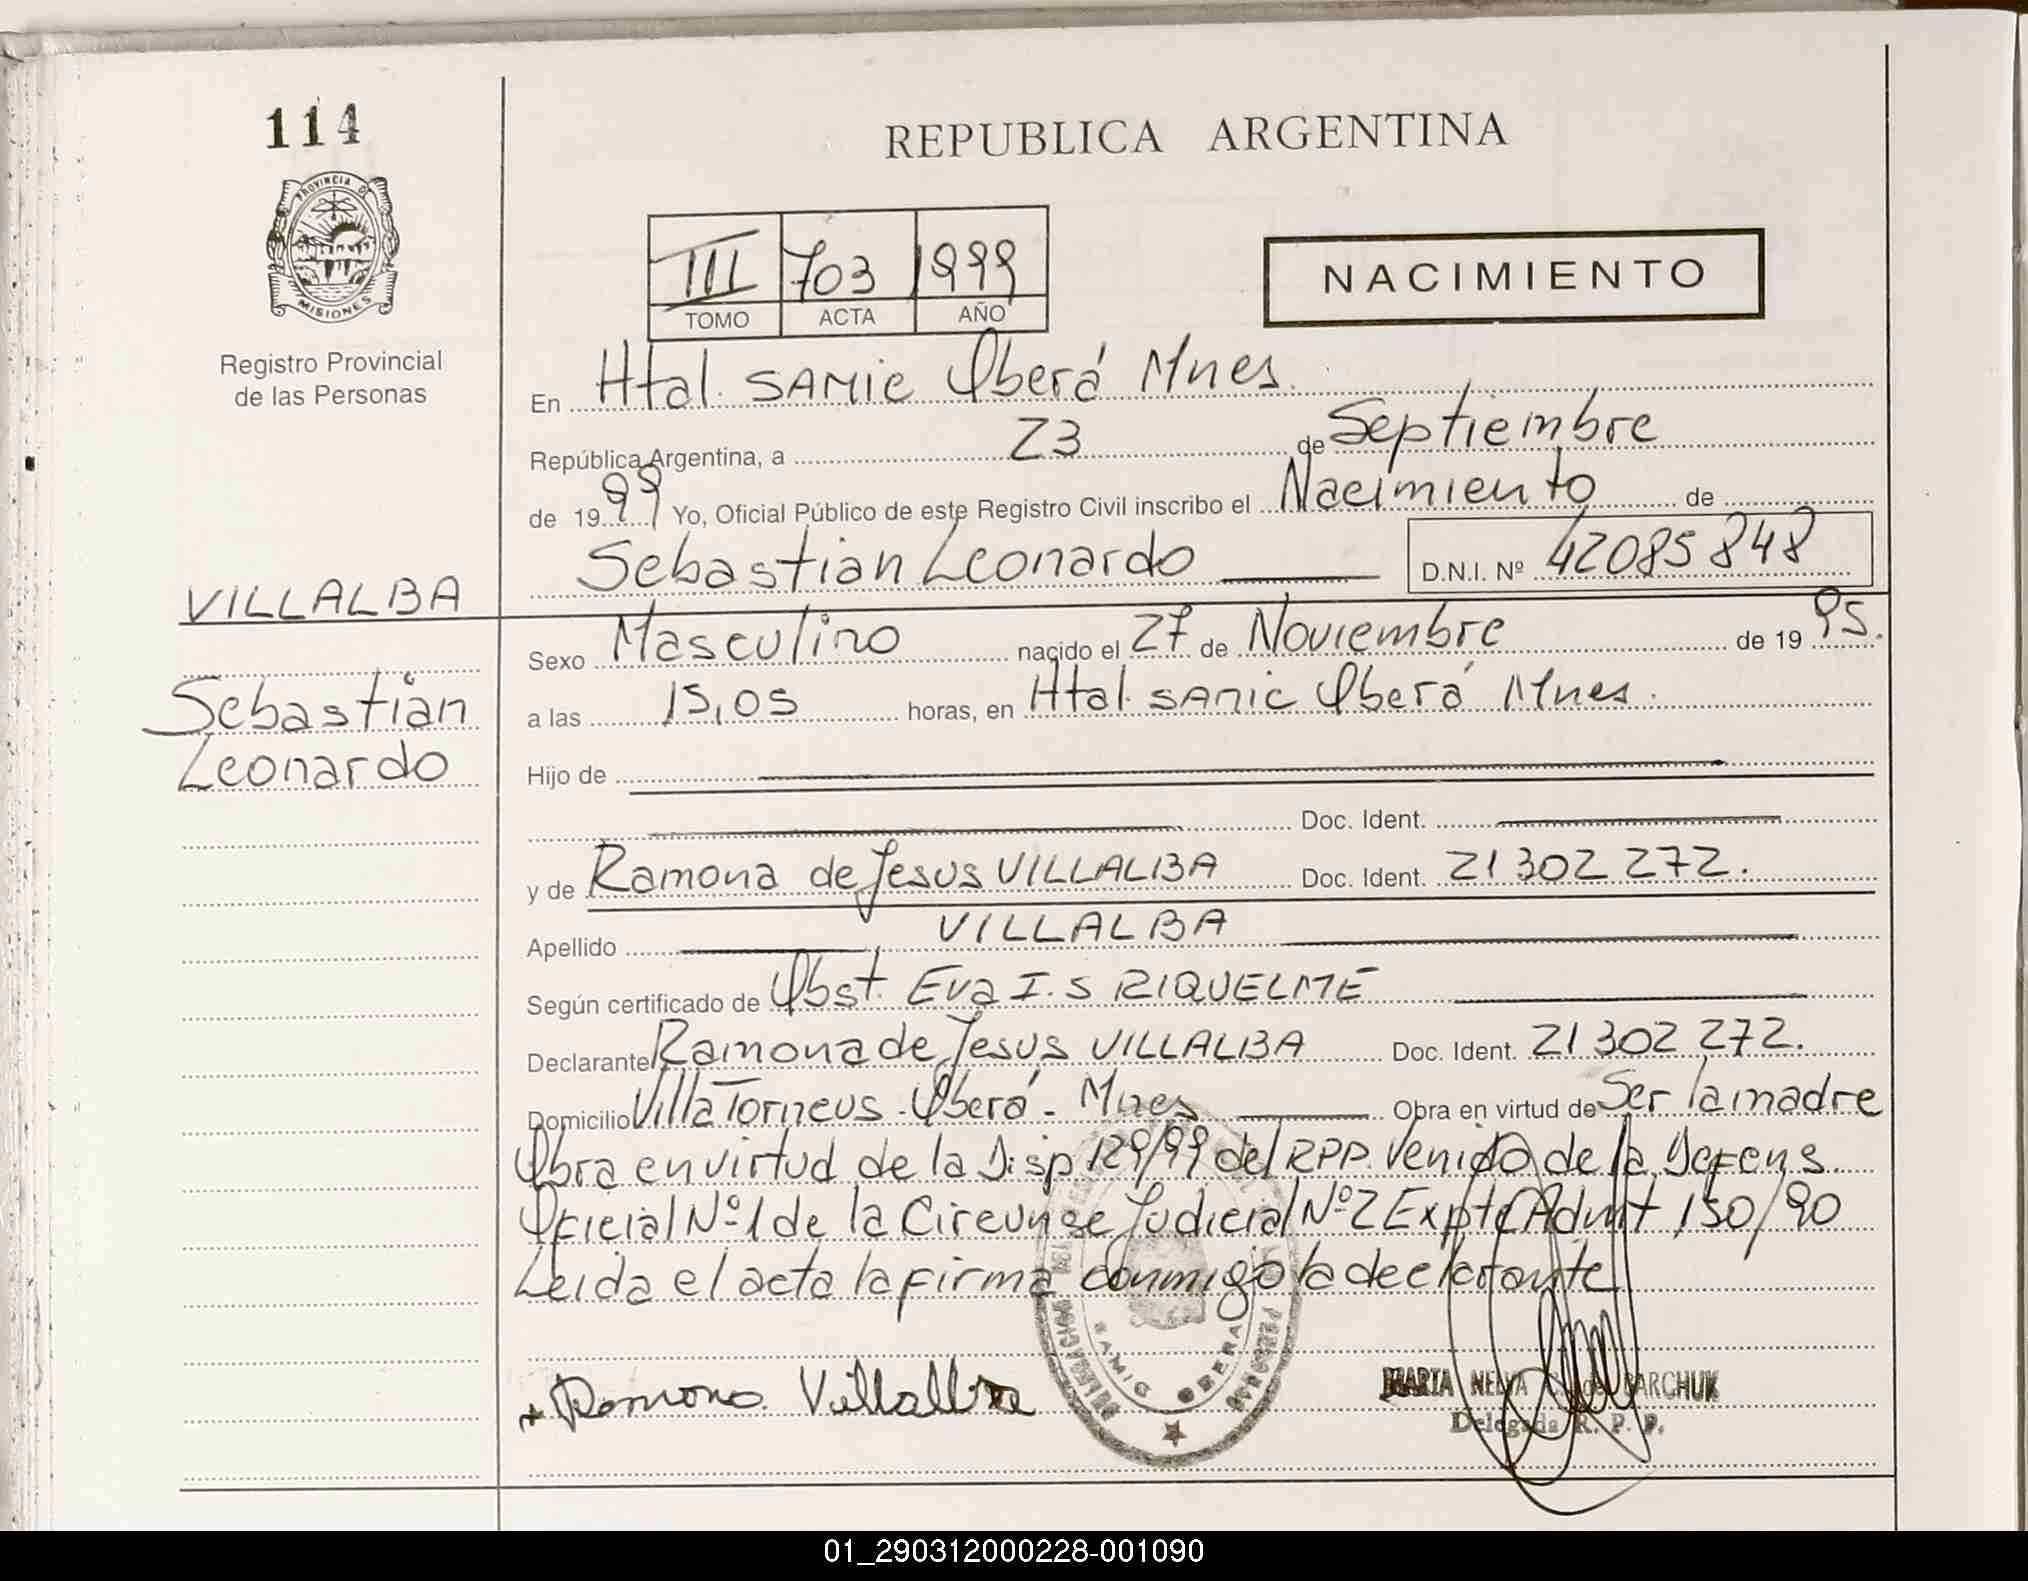 114
REPUBLICA ARGENTINA
PROVINCIA DE
MISIONES
Registro Provincial
de las Personas
III 703 1999
TOMO ACTA AÑO
NACIMIENTO
En Htal. SAMIC Oberá Mnes.
República Argentina, a 23 de Septiembre
de 1999 Yo, Oficial Público de este Registro Civil inscribo el Nacimiento de
Sebastián Leonardo D.N.I. Nº 42085848
VILLALBA
Sebastián
Leonardo
Sexo Masculino nacido el 27 de Noviembre de 1995.
a las 15,05 horas, en Htal. SAMIC Oberá Mnes.
Hijo de
Doc. Ident.
y de Ramona de Jesus VILLALBA Doc. Ident. 21302272.
Apellido VILLALBA
Según certificado de Obst. Eva I. S RIQUELME
Declarante Ramona de Jesus VILLALBA Doc. Ident. 21302272.
Domicilio Villa Torneus - Oberá - Mnes Obra en virtud de Ser la madre
Obra en virtud de la Disp 129/99 del RPP. Venido de la Defens
Oficial Nº 1 de la Circunsc Judicial Nº 2 Expte Admt 150/90
Leida el acta la firma conmigo la declarante
+ Ramona Villalba
SAMIC OBERA
MARTA NELVA C. de BARCHUK
Delegada R. P. P.
01_290312000228-001090